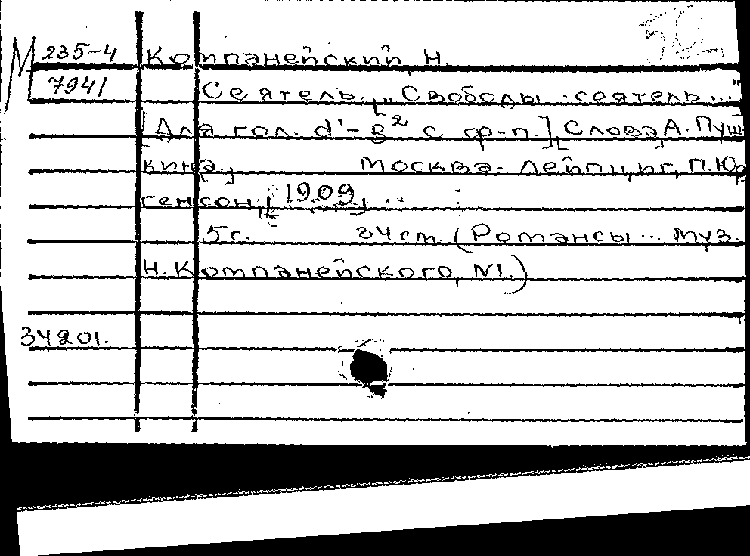 М 235-4 Компанейский, Н.
7941 Сеятель. „Свободы сеятель..."
[Для гол. d'-g² с ф-п.] [Слова А. Пуш
кина] Москва-Лейпциг, П. Юр
генсон, [1909]
5 с. 24 см. (Романсы... муз.
Н. Компанейского, №1.)
34201.